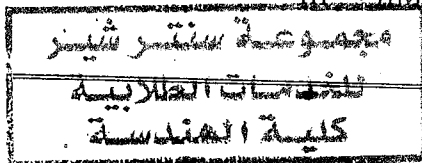 مجموعة سنتر شيتر
للخدمات الطلابية
كلية الهندسة